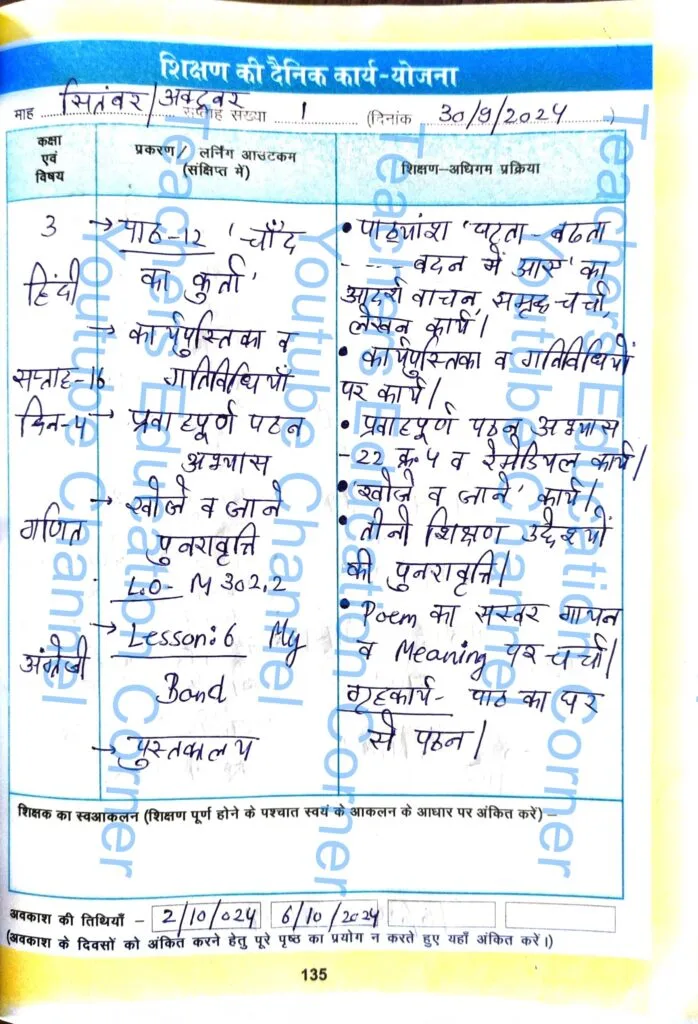 शिक्षण की दैनिक कार्य-योजना
माह सितंबर/अक्टूबर सप्ताह संख्या 1 (दिनांक 30/9/2024)
कक्षा एवं विषय
प्रकरण/ लर्निंग आउटकम (संक्षिप्त में)
शिक्षण-अधिगम प्रक्रिया
3
हिंदी
सप्ताह-16
दिन-4
गणित
अंग्रेजी
→ पाठ-12 'चाँद
का कुर्ता'
→ कार्यपुस्तिका व
गतिविधियाँ
→ प्रवाहपूर्ण पठन
अभ्यास
→ खोजें व जाने
पुनरावृत्ति
L.O- M 302.2
→ Lesson: 6 My
Band
→ पुस्तकालय
• पाठ्यांश 'घटता-बढता
---- बदन में आए' का
आदर्श वाचन, समूह चर्चा,
लेखन कार्य।
• कार्यपुस्तिका व गतिविधियों
पर कार्य।
• प्रवाहपूर्ण पठन अभ्यास
-22 क्र. 4 व रेमेडियल कार्य।
• 'खोजें व जाने' कार्य।
• तीनो शिक्षण उद्देश्यों
की पुनरावृत्ति।
• Poem का सस्वर गायन
व Meaning पर चर्चा।
गृहकार्य- पाठ का घर
से पठन।
शिक्षक का स्वआकलन (शिक्षण पूर्ण होने के पश्चात स्वयं के आकलन के आधार पर अंकित करें) –
अवकाश की तिथियाँ – 2/10/024 6/10/2024
(अवकाश के दिवसों को अंकित करने हेतु पूरे पृष्ठ का प्रयोग न करते हुए यहाँ अंकित करें।)
135
Teachers Education Corner
Youtube Channel
Teachers Education Corner
Youtube Channel